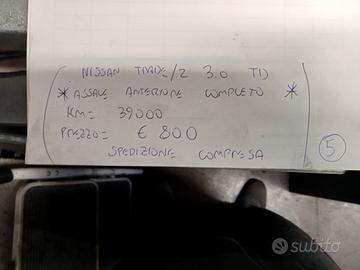 NISSAN TRADE/2 3.0 TD
* ASSALE ANTERIORE COMPLETO *
KM= 39000
PREZZO= € 800
SPEDIZIONE COMPRESA
5
subito